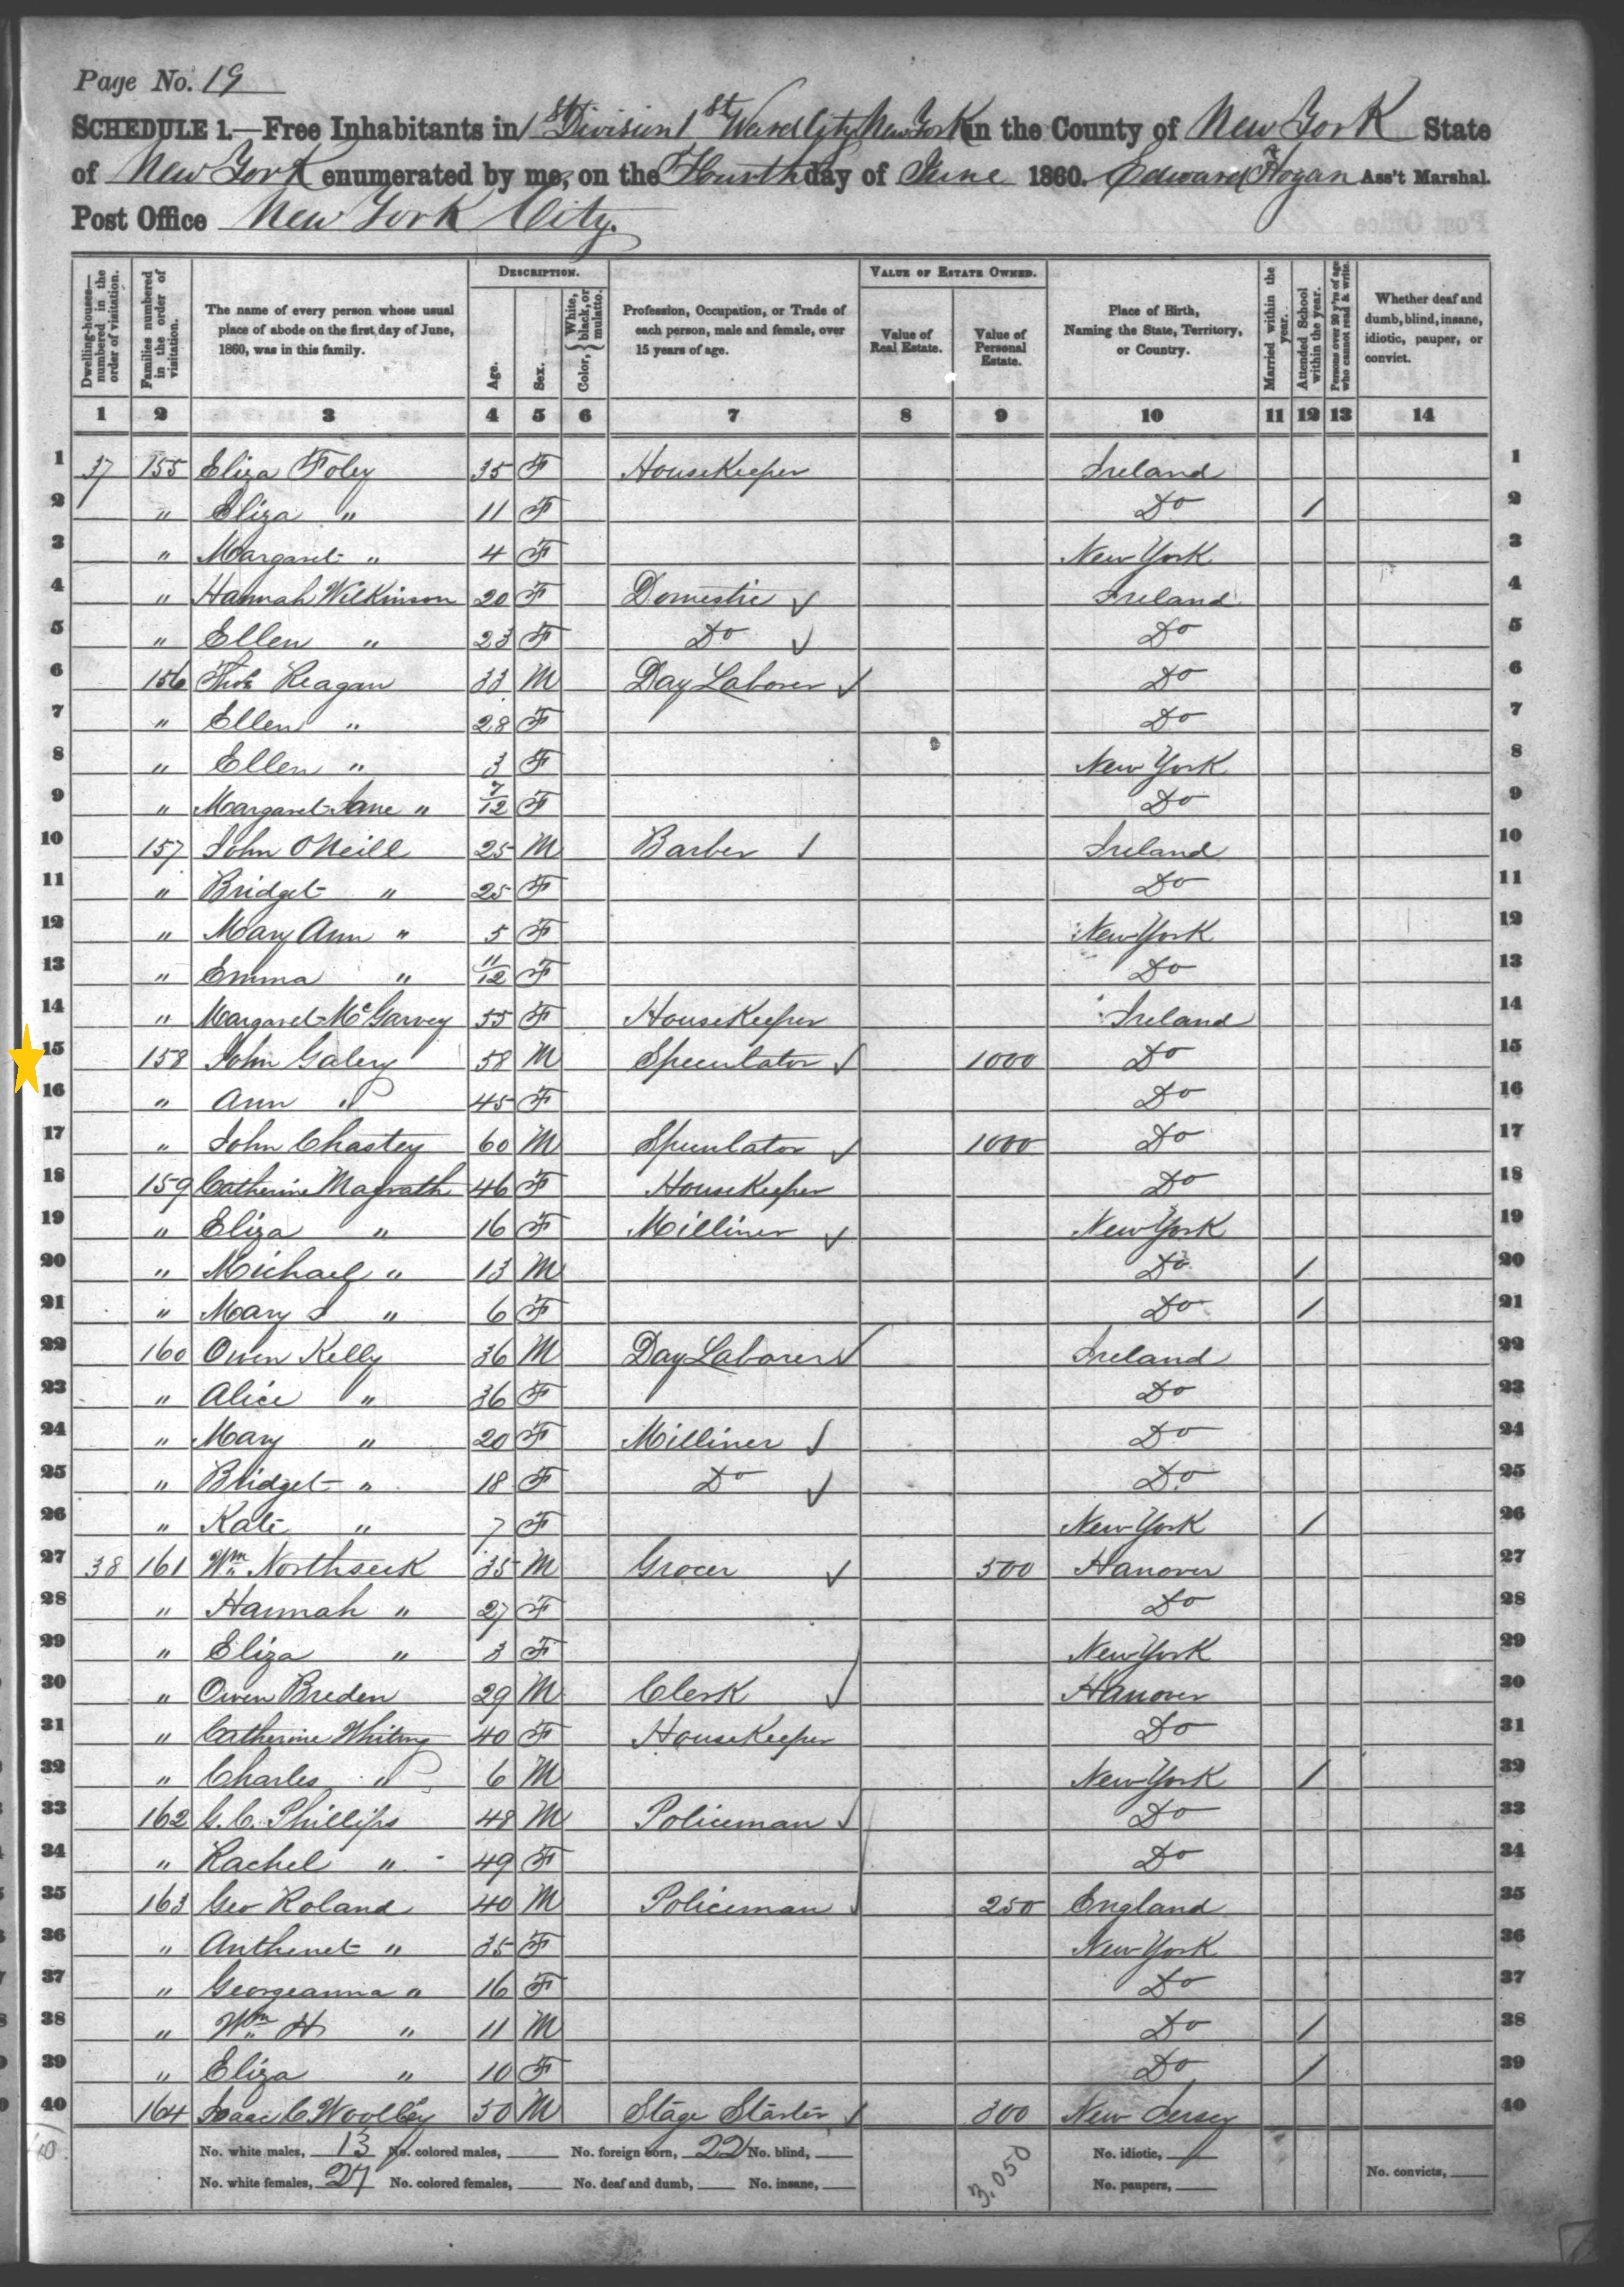 Page No. 19
SCHEDULE 1.—Free Inhabitants in 1st Division 1st Ward City New York in the County of New York State
of New York enumerated by me, on the Fourth day of June 1860. Edward Hogan Ass't Marshal.
Post Office New York City.
Dwelling-houses—numbered in the order of visitation.
Families numbered in the order of visitation.
The name of every person whose usual place of abode on the first day of June, 1860, was in this family.
DESCRIPTION.
Age.
Sex.
Color, { White, black, or mulatto.
Profession, Occupation, or Trade of each person, male and female, over 15 years of age.
VALUE OF ESTATE OWNED.
Value of Real Estate.
Value of Personal Estate.
Place of Birth, Naming the State, Territory, or Country.
Married within the year.
Attended School within the year.
Persons over 20 y'rs of age who cannot read & write.
Whether deaf and dumb, blind, insane, idiotic, pauper, or convict.
1 2 3 4 5 6 7 8 9 10 11 12 13 14
1 37 155 Eliza Foley 35 F HouseKeeper Ireland 1
2 " Eliza " 11 F Do / 2
3 " Margaret " 4 F New York 3
4 " Hannah Wilkinson 20 F Domestic ✓ Ireland 4
5 " Ellen " 23 F Do ✓ Do 5
6 156 Thos Reagan 33 M Day Laborer ✓ Do 6
7 " Ellen " 28 F Do 7
8 " Ellen " 3 F New York 8
9 " Margaret Jane " 7/12 F Do 9
10 157 John O'Neill 25 M Barber ✓ Ireland 10
11 " Bridget " 25 F Do 11
12 " Mary Ann " 5 F New York 12
13 " Emma " 11/12 F Do 13
14 " Margaret McGarvey 55 F HouseKeeper Ireland 14
15 158 John Galery 58 M Speculator ✓ 1000 Do 15
16 " Ann " 45 F Do 16
17 " John Chastey 60 M Speculator ✓ 1000 Do 17
18 159 Catherine Magrath 46 F HouseKeeper Do 18
19 " Eliza " 16 F Milliner ✓ New York 19
20 " Michael " 13 M Do / 20
21 " Mary " 6 F Do / 21
22 160 Owen Kelly 36 M Day Laborer ✓ Ireland 22
23 " Alice " 36 F Do 23
24 " Mary " 20 F Milliner ✓ Do 24
25 " Bridget " 18 F Do ✓ Do 25
26 " Kate " 7 F New York / 26
27 38 161 Wm Northseek 35 M Grocer ✓ 500 Hanover 27
28 " Hannah " 27 F Do 28
29 " Eliza " 3 F New York 29
30 " Owen Breden 29 M Clerk ✓ Hanover 30
31 " Catherine Whiting 40 F HouseKeeper Do 31
32 " Charles " 6 M New York / 32
33 162 G. C. Phillips 48 M Policeman ✓ Do 33
34 " Rachel " 49 F Do 34
35 163 Geo Roland 40 M Policeman ✓ 250 England 35
36 " Anthenet " 35 F New York 36
37 " Georgeanna " 16 F Do 37
38 " Wm H " 11 M Do / 38
39 " Eliza " 10 F Do / 39
40 164 Isaac C Woolley 30 M Stage Starter ✓ 300 New Jersey 40
No. white males, 13 No. colored males, No. foreign born, 22 No. blind, 3.050 No. idiotic,
No. white females, 27 No. colored females, No. deaf and dumb, No. insane, No. paupers, No. convicts,